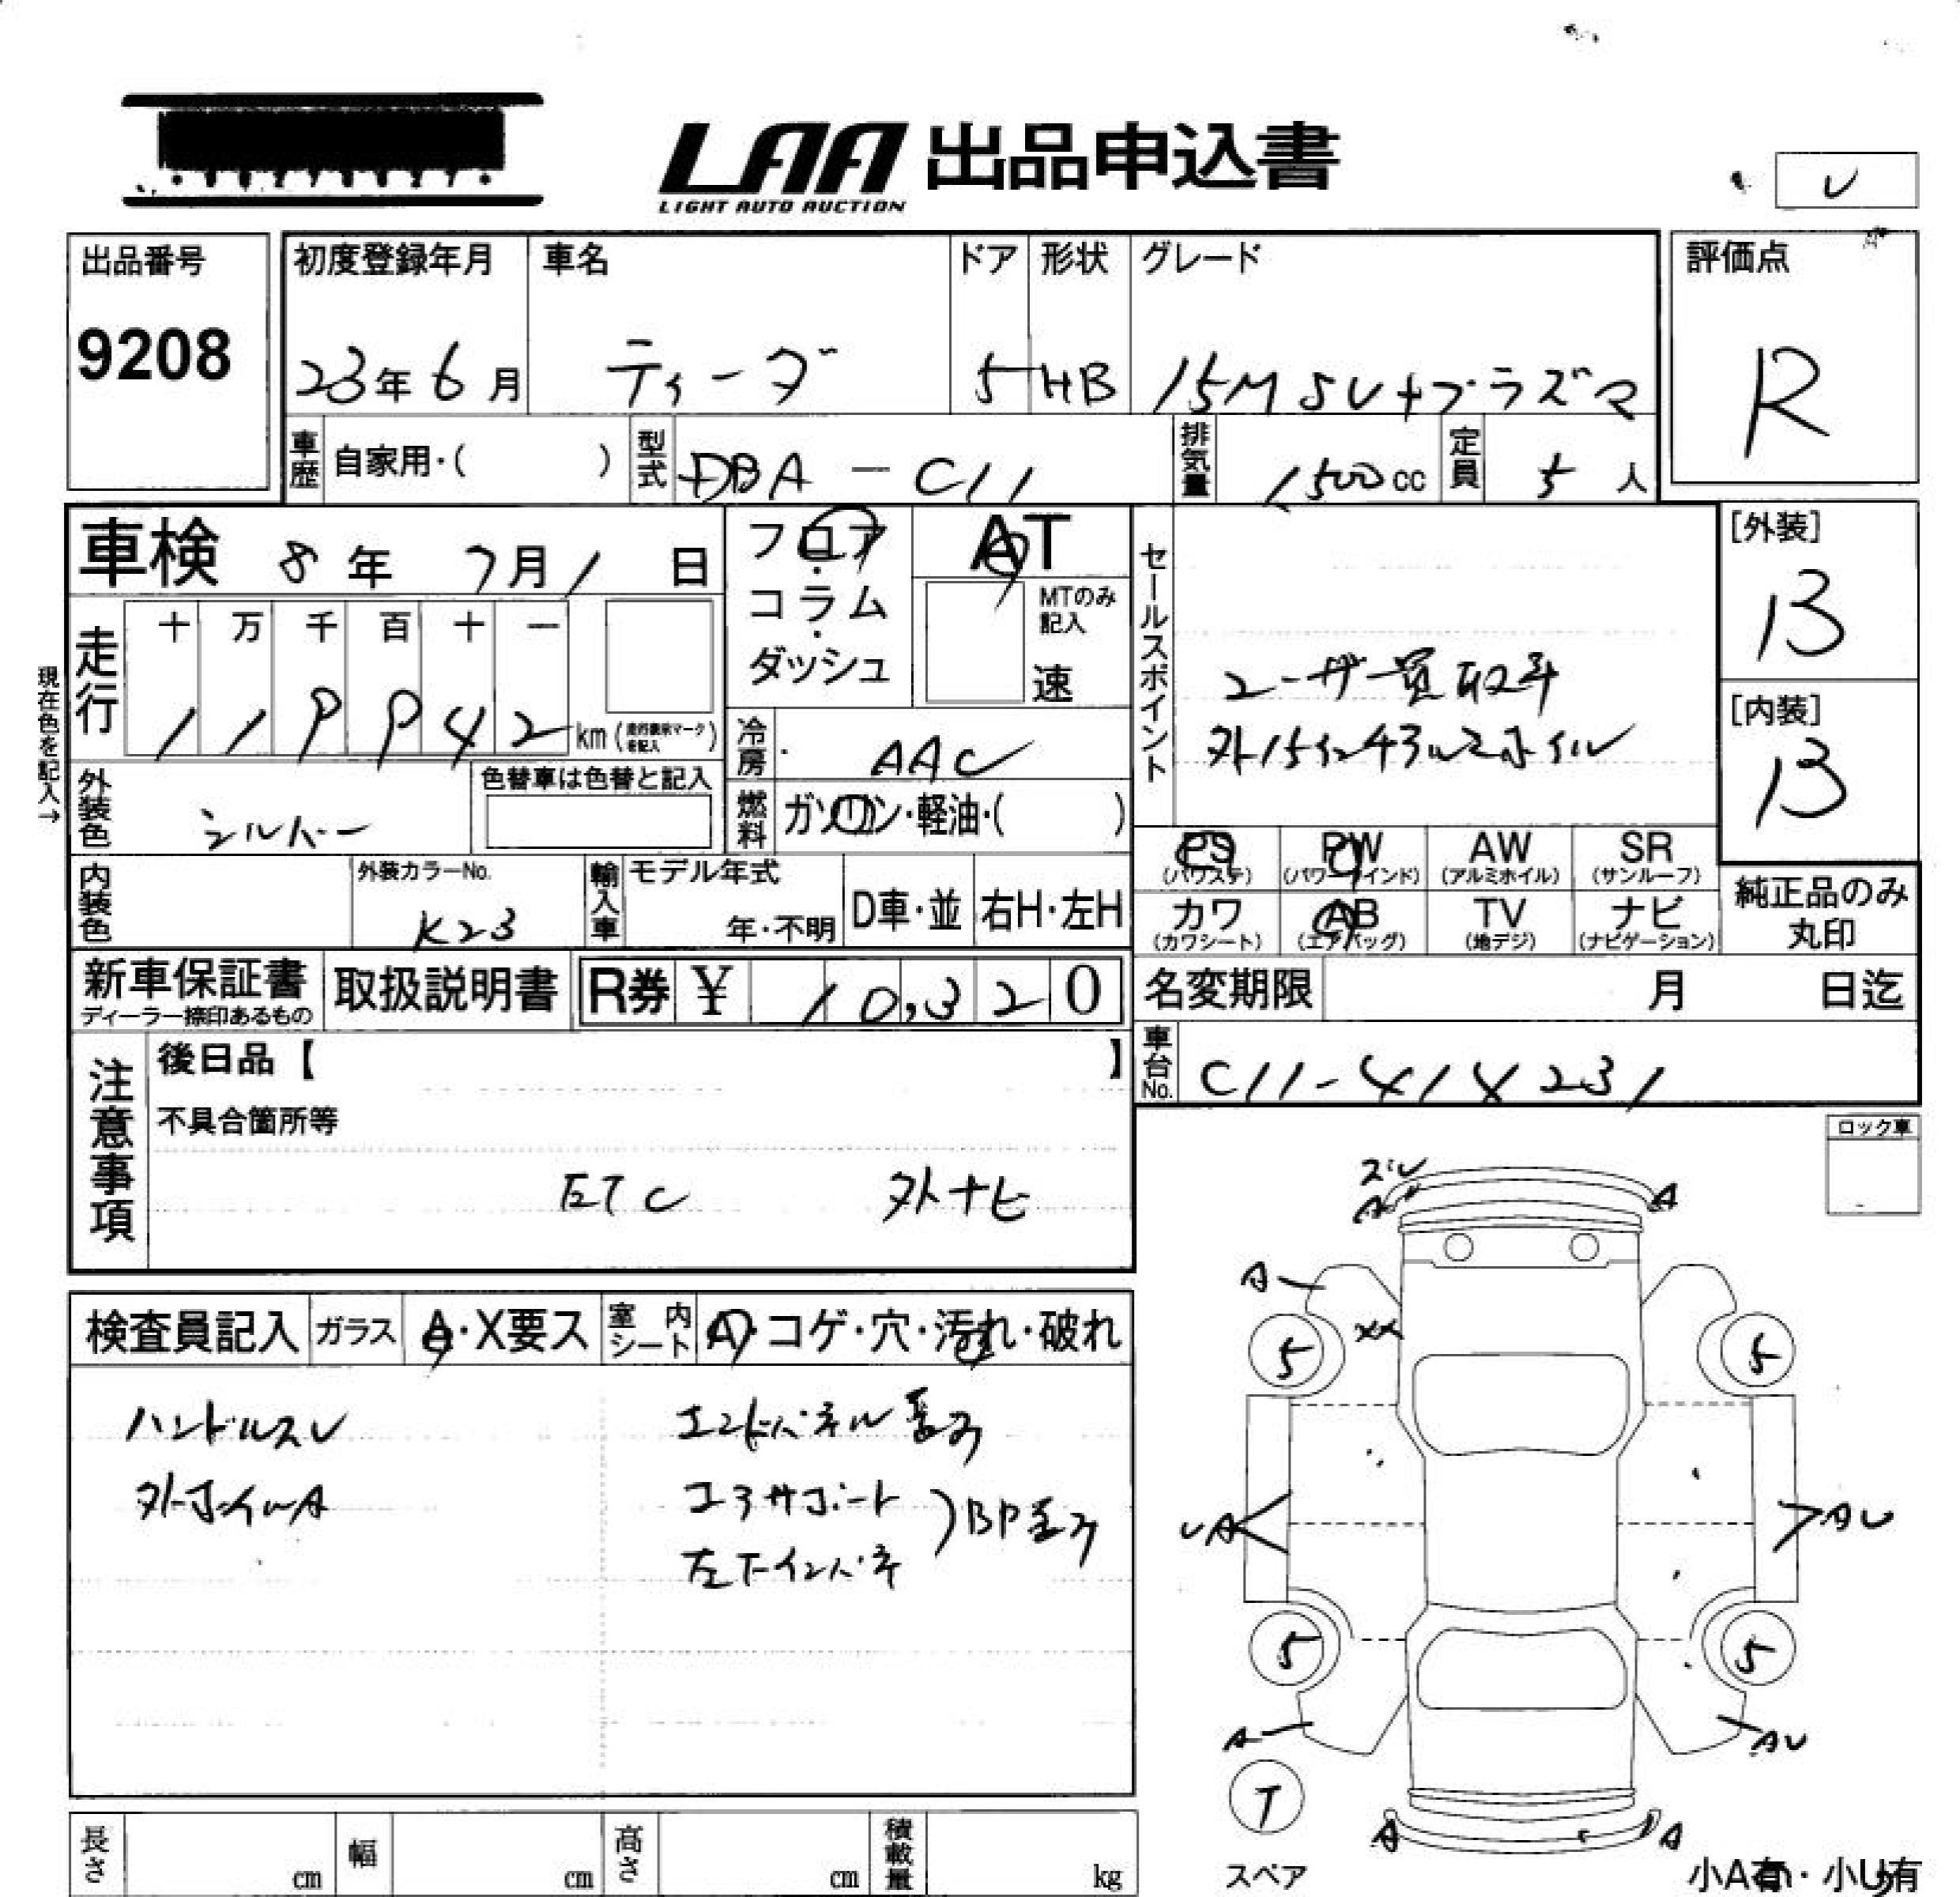 LAA 出品申込書
LIGHT AUTO AUCTION
出品番号
9208
初度登録年月
23年6月
車名
ティーダ
ドア
5
形状
HB
グレード
15M SV+プラズマ
評価点
R
車歴
自家用・( )
型式
DBA-C11
排気量
1500cc
定員
5人
車検 8年 7月1日
フロア・コラム・ダッシュ
AT
MTのみ記入
速
セールスポイント
ユーザー買取車
外15インチアルミホイル
[外装]
B
[内装]
B
現在色を記入→
走行
十 万 千 百 十 一
119942km
冷房
AAC
燃料
ガソリン・軽油・( )
外装色
シルバー
色替車は色替と記入
内装色
外装カラーNo.
K23
輸入車
モデル年式
年・不明
D車・並
右H・左H
PS
(パワステ)
PW
(パワーウインド)
AW
(アルミホイル)
SR
(サンルーフ)
カワ
(カワシート)
AB
(エアバッグ)
TV
(地デジ)
ナビ
(ナビゲーション)
純正品のみ
丸印
新車保証書
ディーラー捺印あるもの
取扱説明書
R券 ¥ 10,320
名変期限
月 日迄
車台No.
C11-414231
注意事項
後日品【 】
不具合箇所等
ETC 外ナビ
ロック車
検査員記入
ガラス
A・X要ス
室内シート
A・コゲ・穴・汚れ・破れ
ハンドルスレ
外ホイルA
エンドパネル歪み
コアサポート
左F インパネ
)BP歪み
A
A
A
XX
5
5
UA
AU
5
5
A
AU
T
スペア
A
A
小A有・小U有
長さ
cm
幅
cm
高さ
cm
積載量
kg